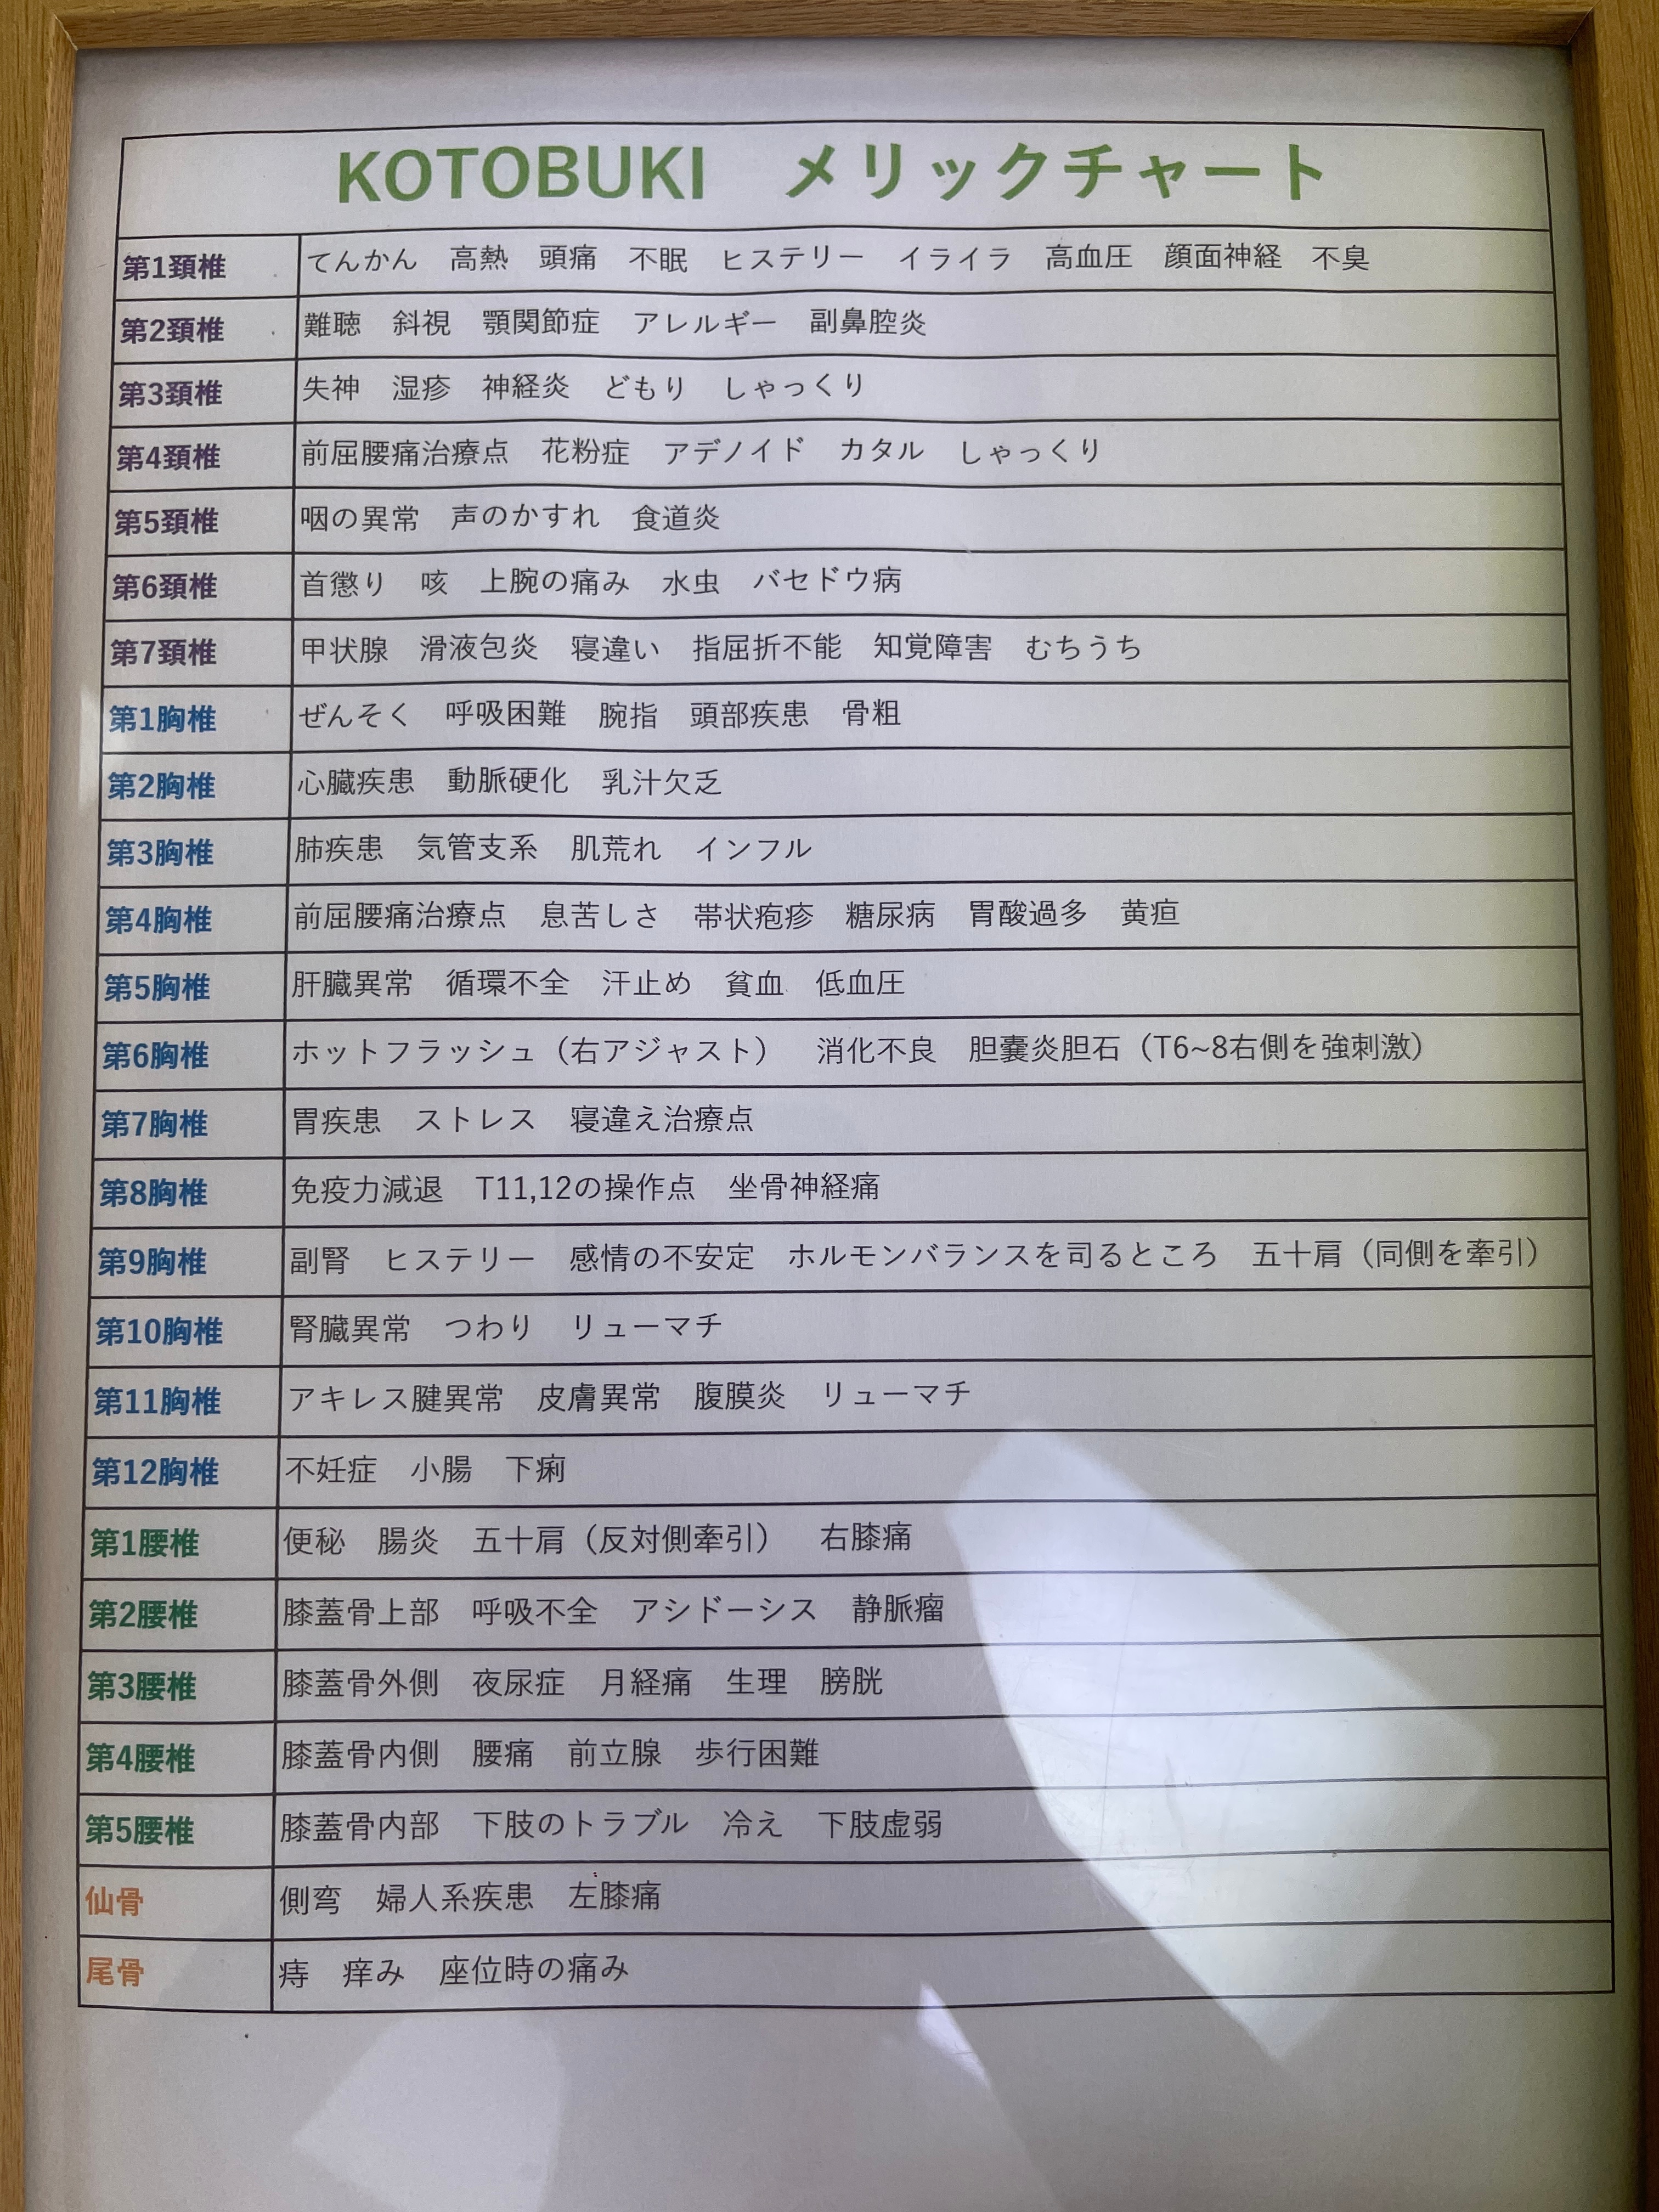 KOTOBUKI　メリックチャート
第1頚椎　てんかん　高熱　頭痛　不眠　ヒステリー　イライラ　高血圧　顔面神経　不臭
第2頚椎　難聴　斜視　顎関節症　アレルギー　副鼻腔炎
第3頚椎　失神　湿疹　神経炎　どもり　しゃっくり
第4頚椎　前屈腰痛治療点　花粉症　アデノイド　カタル　しゃっくり
第5頚椎　咽の異常　声のかすれ　食道炎
第6頚椎　首懲り　咳　上腕の痛み　水虫　バセドウ病
第7頚椎　甲状腺　滑液包炎　寝違い　指屈折不能　知覚障害　むちうち
第1胸椎　ぜんそく　呼吸困難　腕指　頭部疾患　骨粗
第2胸椎　心臓疾患　動脈硬化　乳汁欠乏
第3胸椎　肺疾患　気管支系　肌荒れ　インフル
第4胸椎　前屈腰痛治療点　息苦しさ　帯状疱疹　糖尿病　胃酸過多　黄疸
第5胸椎　肝臓異常　循環不全　汗止め　貧血　低血圧
第6胸椎　ホットフラッシュ（右アジャスト）　消化不良　胆嚢炎胆石（T6~8右側を強刺激）
第7胸椎　胃疾患　ストレス　寝違え治療点
第8胸椎　免疫力減退　T11,12の操作点　坐骨神経痛
第9胸椎　副腎　ヒステリー　感情の不安定　ホルモンバランスを司るところ　五十肩（同側を牽引）
第10胸椎　腎臓異常　つわり　リューマチ
第11胸椎　アキレス腱異常　皮膚異常　腹膜炎　リューマチ
第12胸椎　不妊症　小腸　下痢
第1腰椎　便秘　腸炎　五十肩（反対側牽引）　右膝痛
第2腰椎　膝蓋骨上部　呼吸不全　アシドーシス　静脈瘤
第3腰椎　膝蓋骨外側　夜尿症　月経痛　生理　膀胱
第4腰椎　膝蓋骨内側　腰痛　前立腺　歩行困難
第5腰椎　膝蓋骨内部　下肢のトラブル　冷え　下肢虚弱
仙骨　側弯　婦人系疾患　左膝痛
尾骨　痔　痒み　座位時の痛み